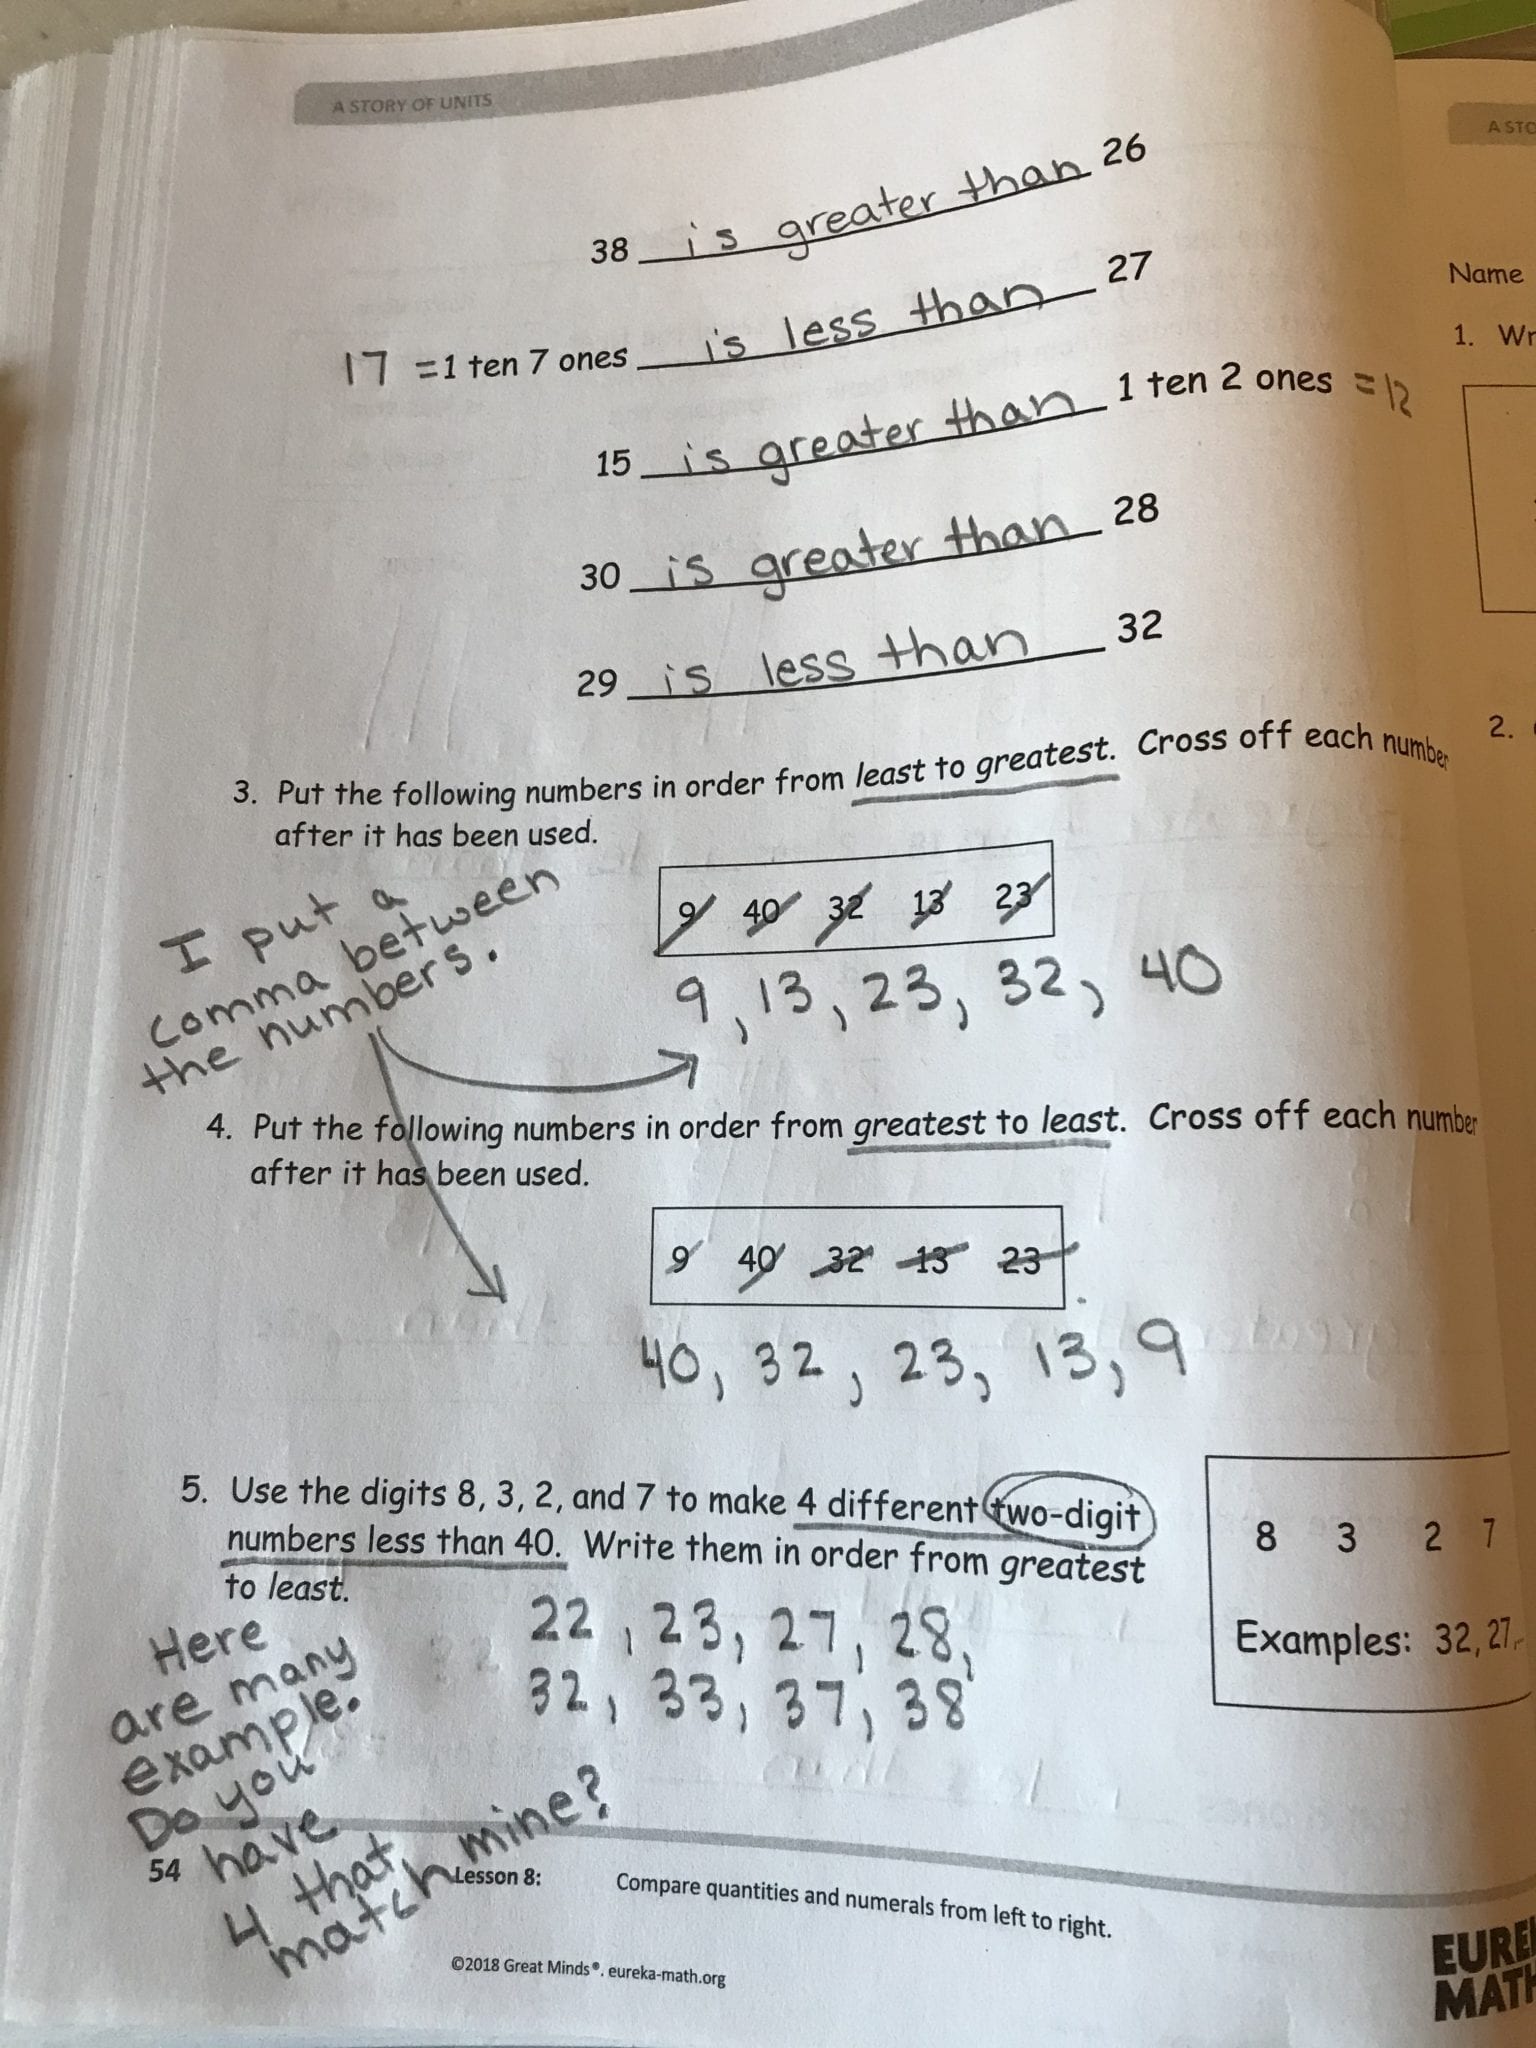 A STORY OF UNITS
38 is greater than 26
17 = 1 ten 7 ones is less than 27
15 is greater than 1 ten 2 ones = 12
30 is greater than 28
29 is less than 32
3. Put the following numbers in order from least to greatest. Cross off each number
after it has been used.
9 40 32 13 23
9, 13, 23, 32, 40
I put a
comma between
the numbers.
4. Put the following numbers in order from greatest to least. Cross off each number
after it has been used.
9 40 32 13 23
40, 32, 23, 13, 9
5. Use the digits 8, 3, 2, and 7 to make 4 different two-digit
numbers less than 40. Write them in order from greatest
to least.
22, 23, 27, 28,
32, 33, 37, 38
8 3 2 7
Examples: 32, 27,
Here
are many
example.
Do you
have
4 that
match mine?
54 Lesson 8: Compare quantities and numerals from left to right.
©2018 Great Minds®. eureka-math.org
Name
1.
2.